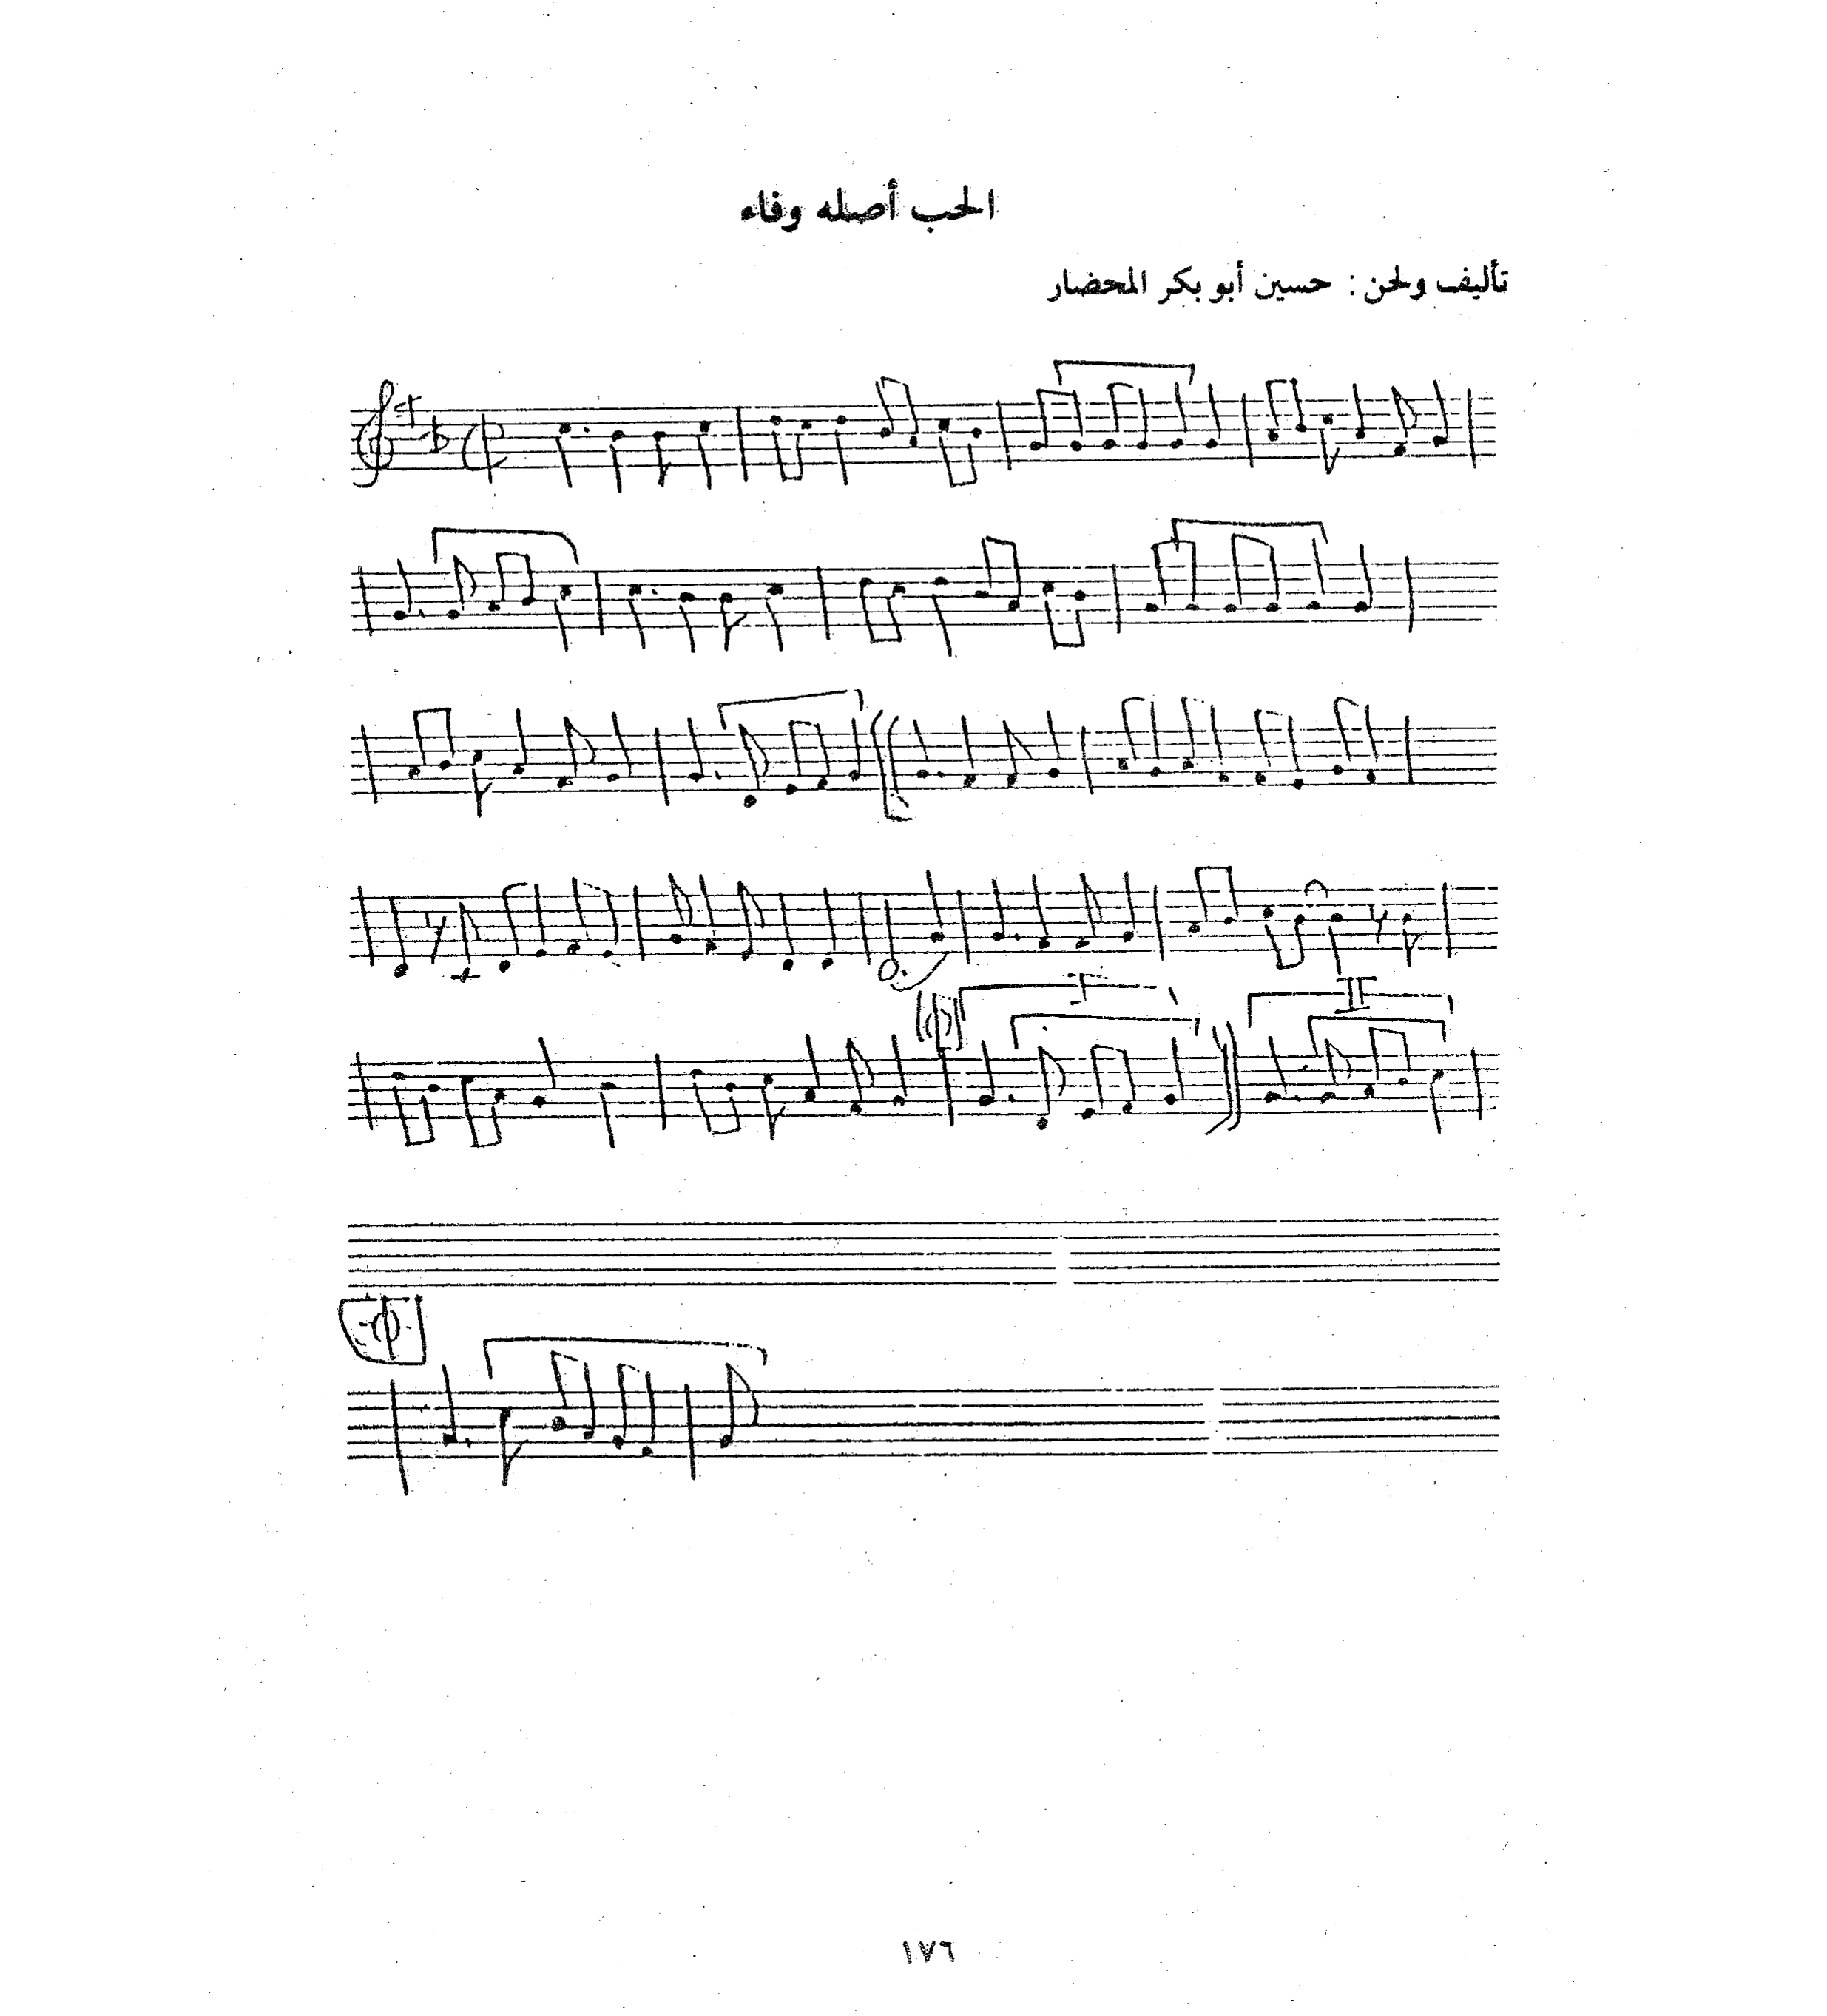 الحب أصله وفاء
تأليف ولحن : حسين أبو بكر المحضار
I
II
١٧٦